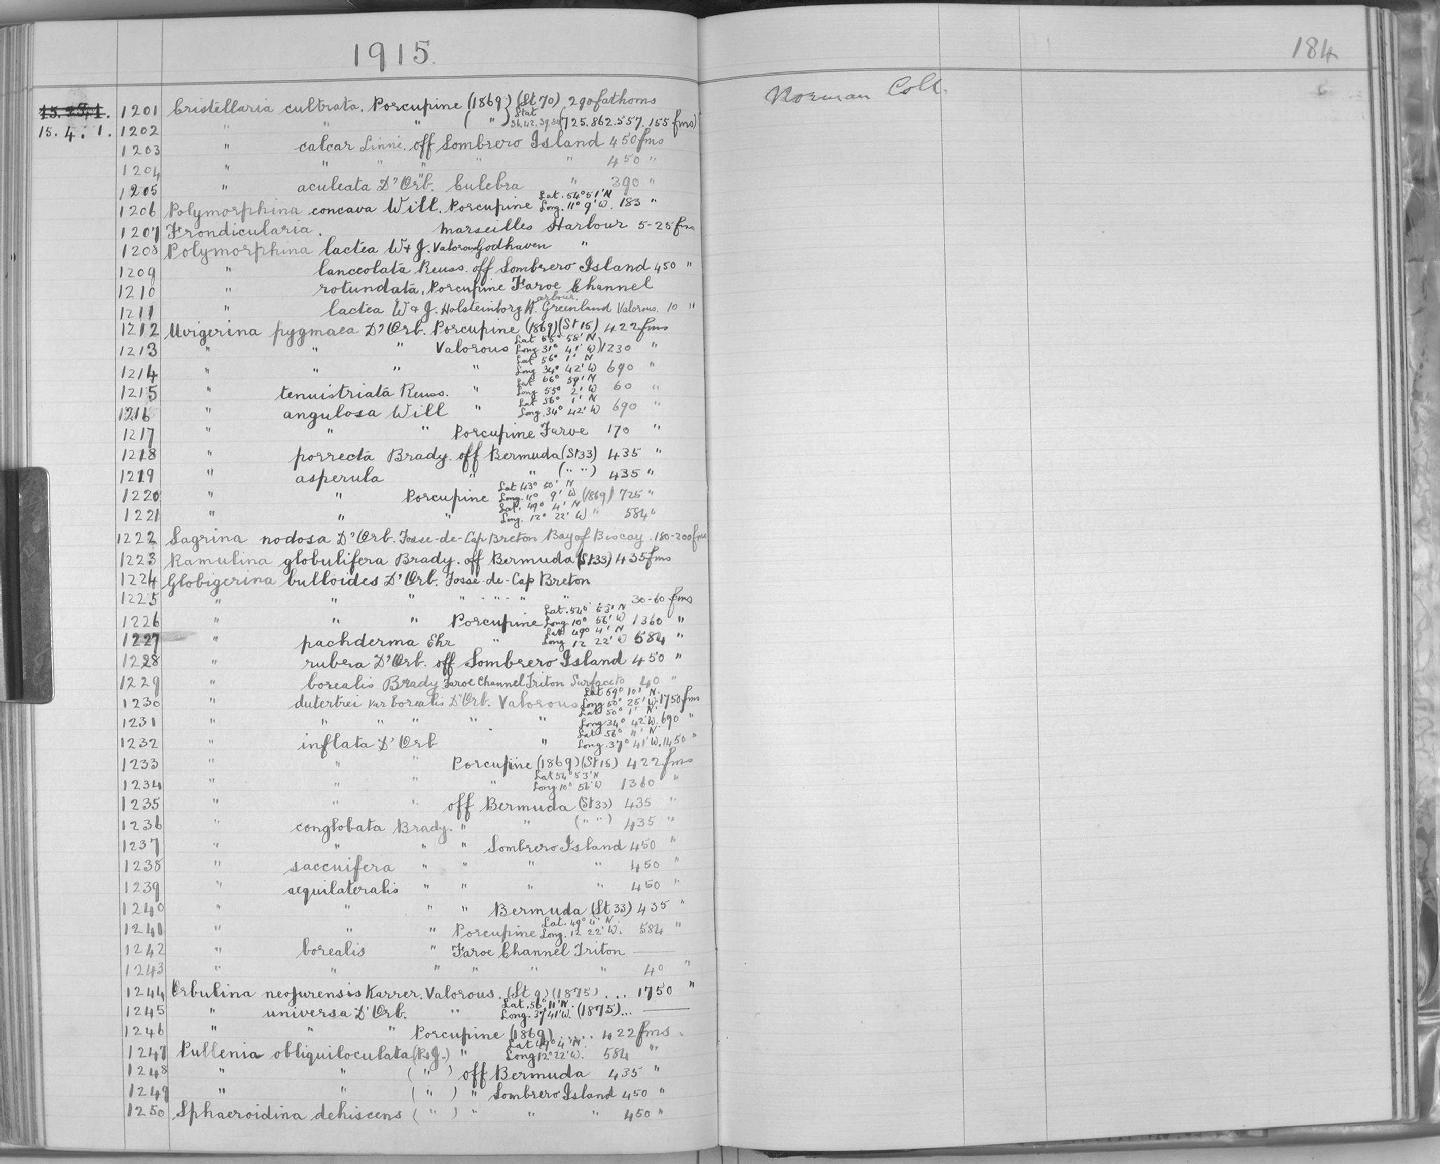 1915.
184
Norman Coll.
15.4.1. 1201 Cristellaria cultrata. Porcupine (1869) (St 70) 290 fathoms
1202 " " " ( " ) Stat 36,42,39,30 (725.862.557.155 fms)
1203 " calcar Linné. off Sombrero Island 450 fms
1204 " " " " " " 450 "
1205 " aculeata D'Orb. Culebra " 390 "
1206 Polymorphina concava Will. Porcupine Lat. 54° 51' N Long. 11° 9' W. 183 "
1207 Frondicularia. Marseilles Harbour 5-25 fms
1208 Polymorphina lactea W & J. Valorous Godhaven "
1209 " lanceolata Reuss. off Sombrero Island 450 "
1210 " rotundata. Porcupine Faroe Channel
1211 " lactea W & J. Holsteinborg Harbour. Greenland Valorous. 10 "
1212 Uvigerina pygmaea D'Orb. Porcupine (1869) (St 15) 422 fms
1213 " " " Valorous Long 31° 41' W) 1230 "
1214 " " " " Lat 56° 1' N Long 34° 42' W 690 "
1215 " tenuistriata Reuss. " Lat 66° 59' N Long 55° 2' W 60 "
1216 " angulosa Will " Lat 56° 1' N Long. 34° 42' W 690 "
1217 " " " Porcupine Faroe 170 "
1218 " porrecta Brady. off Bermuda (St 33) 435 "
1219 " asperula " " ( " " ) 435 "
1220 " " Porcupine Lat 43° 50' N Long. 11° 9' W (1869) 725 "
1221 " " " Lat. 49° 4' N Long. 12° 22' W " 584 "
1222 Sagrina nodosa D'Orb. Fosse-de-Cap Breton Bay of Biscay. 180-200 fms
1223 Ramulina globulifera Brady. off Bermuda (St 33) 435 fms
1224 Globigerina bulloides D'Orb. Fosse-de-Cap Breton
1225 " " " " - " - " - " " 30-60 fms
1226 " " " Porcupine Lat. 54° 53' N Long 10° 56' W 1360 "
1227 " pachderma Ehr " Lat 49° 4' N Long 12 22' W 584 "
1228 " rubera D'Orb. off Sombrero Island 450 "
1229 " borealis Brady Faroe Channel Triton Surface to 40 "
1230 " dutertrei var borealis D'Orb. Valorous Lat 59° 10' N. Long 50° 25' W. 1750 fms
1231 " " " " " " Lat 50° 1' N. Long 34° 42' W. 690 "
1232 " inflata D'Orb " Lat 56° 11' N. Long. 37° 41' W. 1450 "
1233 " " " Porcupine (1869) (St 15) 422 fms
1234 " " " " Lat 54° 53' N Long 10° 56' W 1360 "
1235 " " " off Bermuda (St 33) 435 "
1236 " conglobata Brady. " " ( " " ) 435 "
1237 " " " " Sombrero Island 450 "
1238 " saccuifera " " " " 450 "
1239 " aequilateralis " " " " 450 "
1240 " " " " Bermuda (St 33) 435 "
1241 " " " Porcupine Lat. 49° 4' N Long. 12 22' W. 584 "
1242 " borealis " Faroe Channel Triton ——
1243 " " " " " " 40 "
1244 Orbulina neojurensis Karrer. Valorous. (St 9) (1875) ... 1750 "
1245 " universa D'Orb. " Lat. 56° 11' N. Long. 37 41' W. (1875)... ——
1246 " " " Porcupine (1869) ..... 422 fms.
1247 Pullenia obliquiloculata (P & J.) " Lat 49° 4' N. Long 12° 22' W. 584 "
1248 " " ( " ) off Bermuda 435 "
1249 " " ( " ) " Sombrero Island 450 "
1250 Sphaeroidina dehiscens ( " ) " " " 450 "